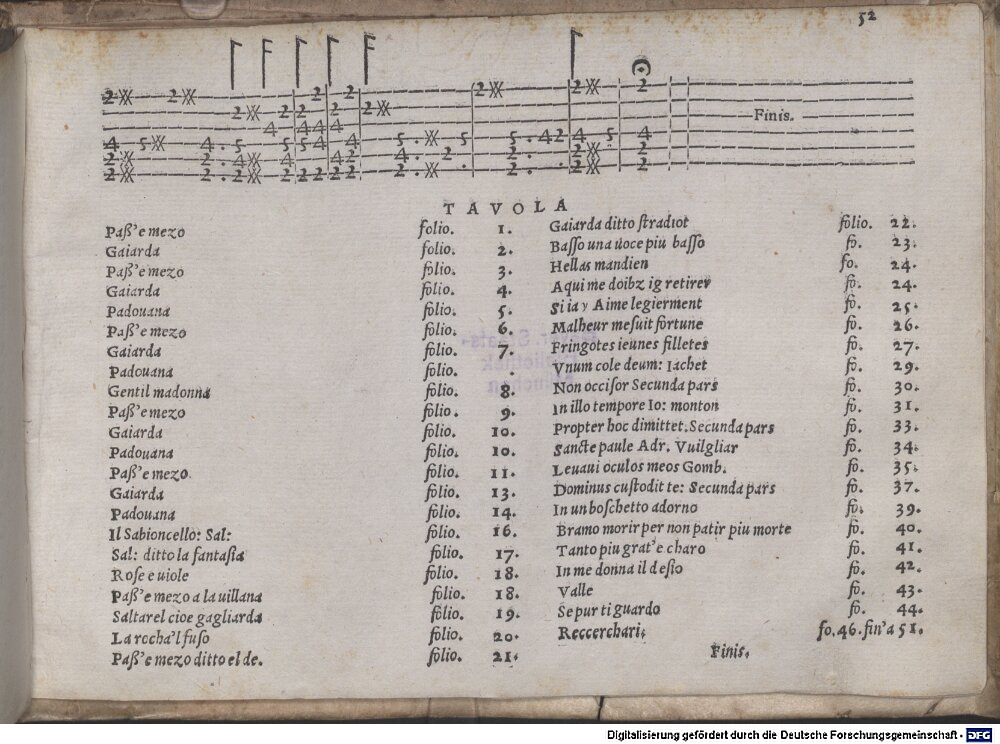 52
Finis.
TAVOLA
Paß'e mezo folio. 1.
Gaiarda folio. 2.
Paß'e mezo folio. 3.
Gaiarda folio. 4.
Padouana folio. 5.
Paß'e mezo folio. 6.
Gaiarda folio. 7.
Padouana folio. .
Gentil madonna folio. 8.
Paß'e mezo folio. 9.
Gaiarda folio. 10.
Padouana folio. 10.
Paß'e mezo folio. 11.
Gaiarda folio. 13.
Padouana folio. 14.
Il Sabioncello: Sal: folio. 16.
Sal: ditto la fantasia folio. 17.
Rose e uiole folio. 18.
Paß'e mezo a la uillana folio. 18.
Saltarel cioe gagliarda folio. 19.
La rocha'l fuso folio. 20.
Paß'e mezo ditto el de. folio. 21.
Gaiarda ditto stradiot folio. 22.
Basso una uoce piu basso fo. 23.
Hellas mandien fo. 24.
A qui me doibz ig retirer fo. 24.
Si ia y Aime legierment fo. 25.
Malheur me suit fortune fo. 26.
Fringotes ieunes filletes fo. 27.
Vnum cole deum: Iachet fo. 29.
Non occisor Secunda pars fo. 30.
In illo tempore Io: monton fo. 31.
Propter hoc dimittet. Secunda pars fo. 33.
Sancte paule Adr. Vuilgliar fo. 34.
Leuaui oculos meos Gomb. fo. 35.
Dominus custodit te: Secunda pars fo. 37.
In un boschetto adorno fo. 39.
Bramo morir per non patir piu morte fo. 40.
Tanto piu grat'e charo fo. 41.
In me donna il desio fo. 42.
Valle fo. 43.
Se pur ti guardo fo. 44.
Reccerchari. fo. 46. fin'a 51.
Finis.
Digitalisierung gefördert durch die Deutsche Forschungsgemeinschaft - DFG